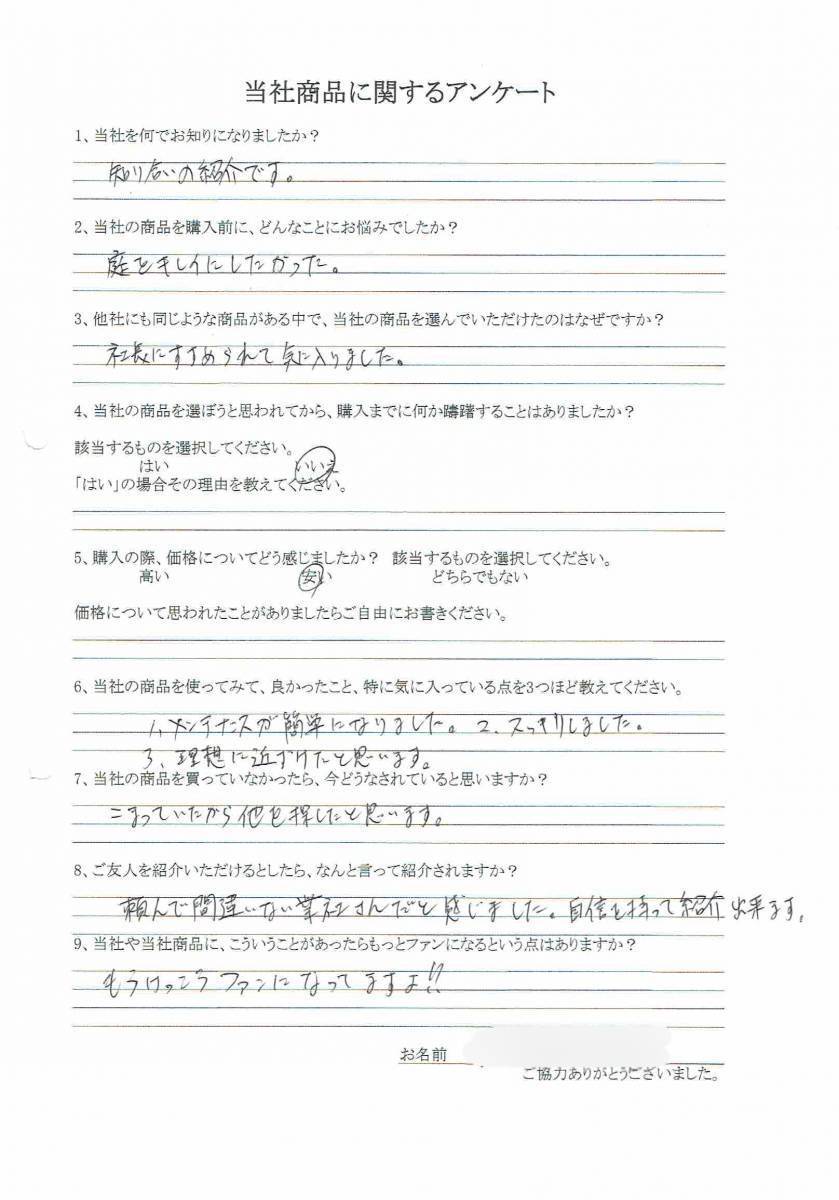 当社商品に関するアンケート
1、当社を何でお知りになりましたか？
知り合いの紹介です。
2、当社の商品を購入前に、どんなことにお悩みでしたか？
庭をキレイにしたかった。
3、他社にも同じような商品がある中で、当社の商品を選んでいただけたのはなぜですか？
社長にすすめられて気に入りました。
4、当社の商品を選ぼうと思われてから、購入までに何か躊躇することはありましたか？
該当するものを選択してください。
はい いいえ
「はい」の場合その理由を教えてください。
5、購入の際、価格についてどう感じましたか？ 該当するものを選択してください。
高い 安い どちらでもない
価格について思われたことがありましたらご自由にお書きください。
6、当社の商品を使ってみて、良かったこと、特に気に入っている点を3つほど教えてください。
1、メンテナンスが簡単になりました。 2、スッキリしました。
3、理想に近ずけたと思います。
7、当社の商品を買っていなかったら、今どうなされていると思いますか？
こまっていたから他を探したと思います。
8、ご友人を紹介いただけるとしたら、なんと言って紹介されますか？
頼んで間違いない業社さんだと感じました。自信を持って紹介出来ます。
9、当社や当社商品に、こういうことがあったらもっとファンになるという点はありますか？
もうけっこうファンになってますよ!!
お名前
ご協力ありがとうございました。